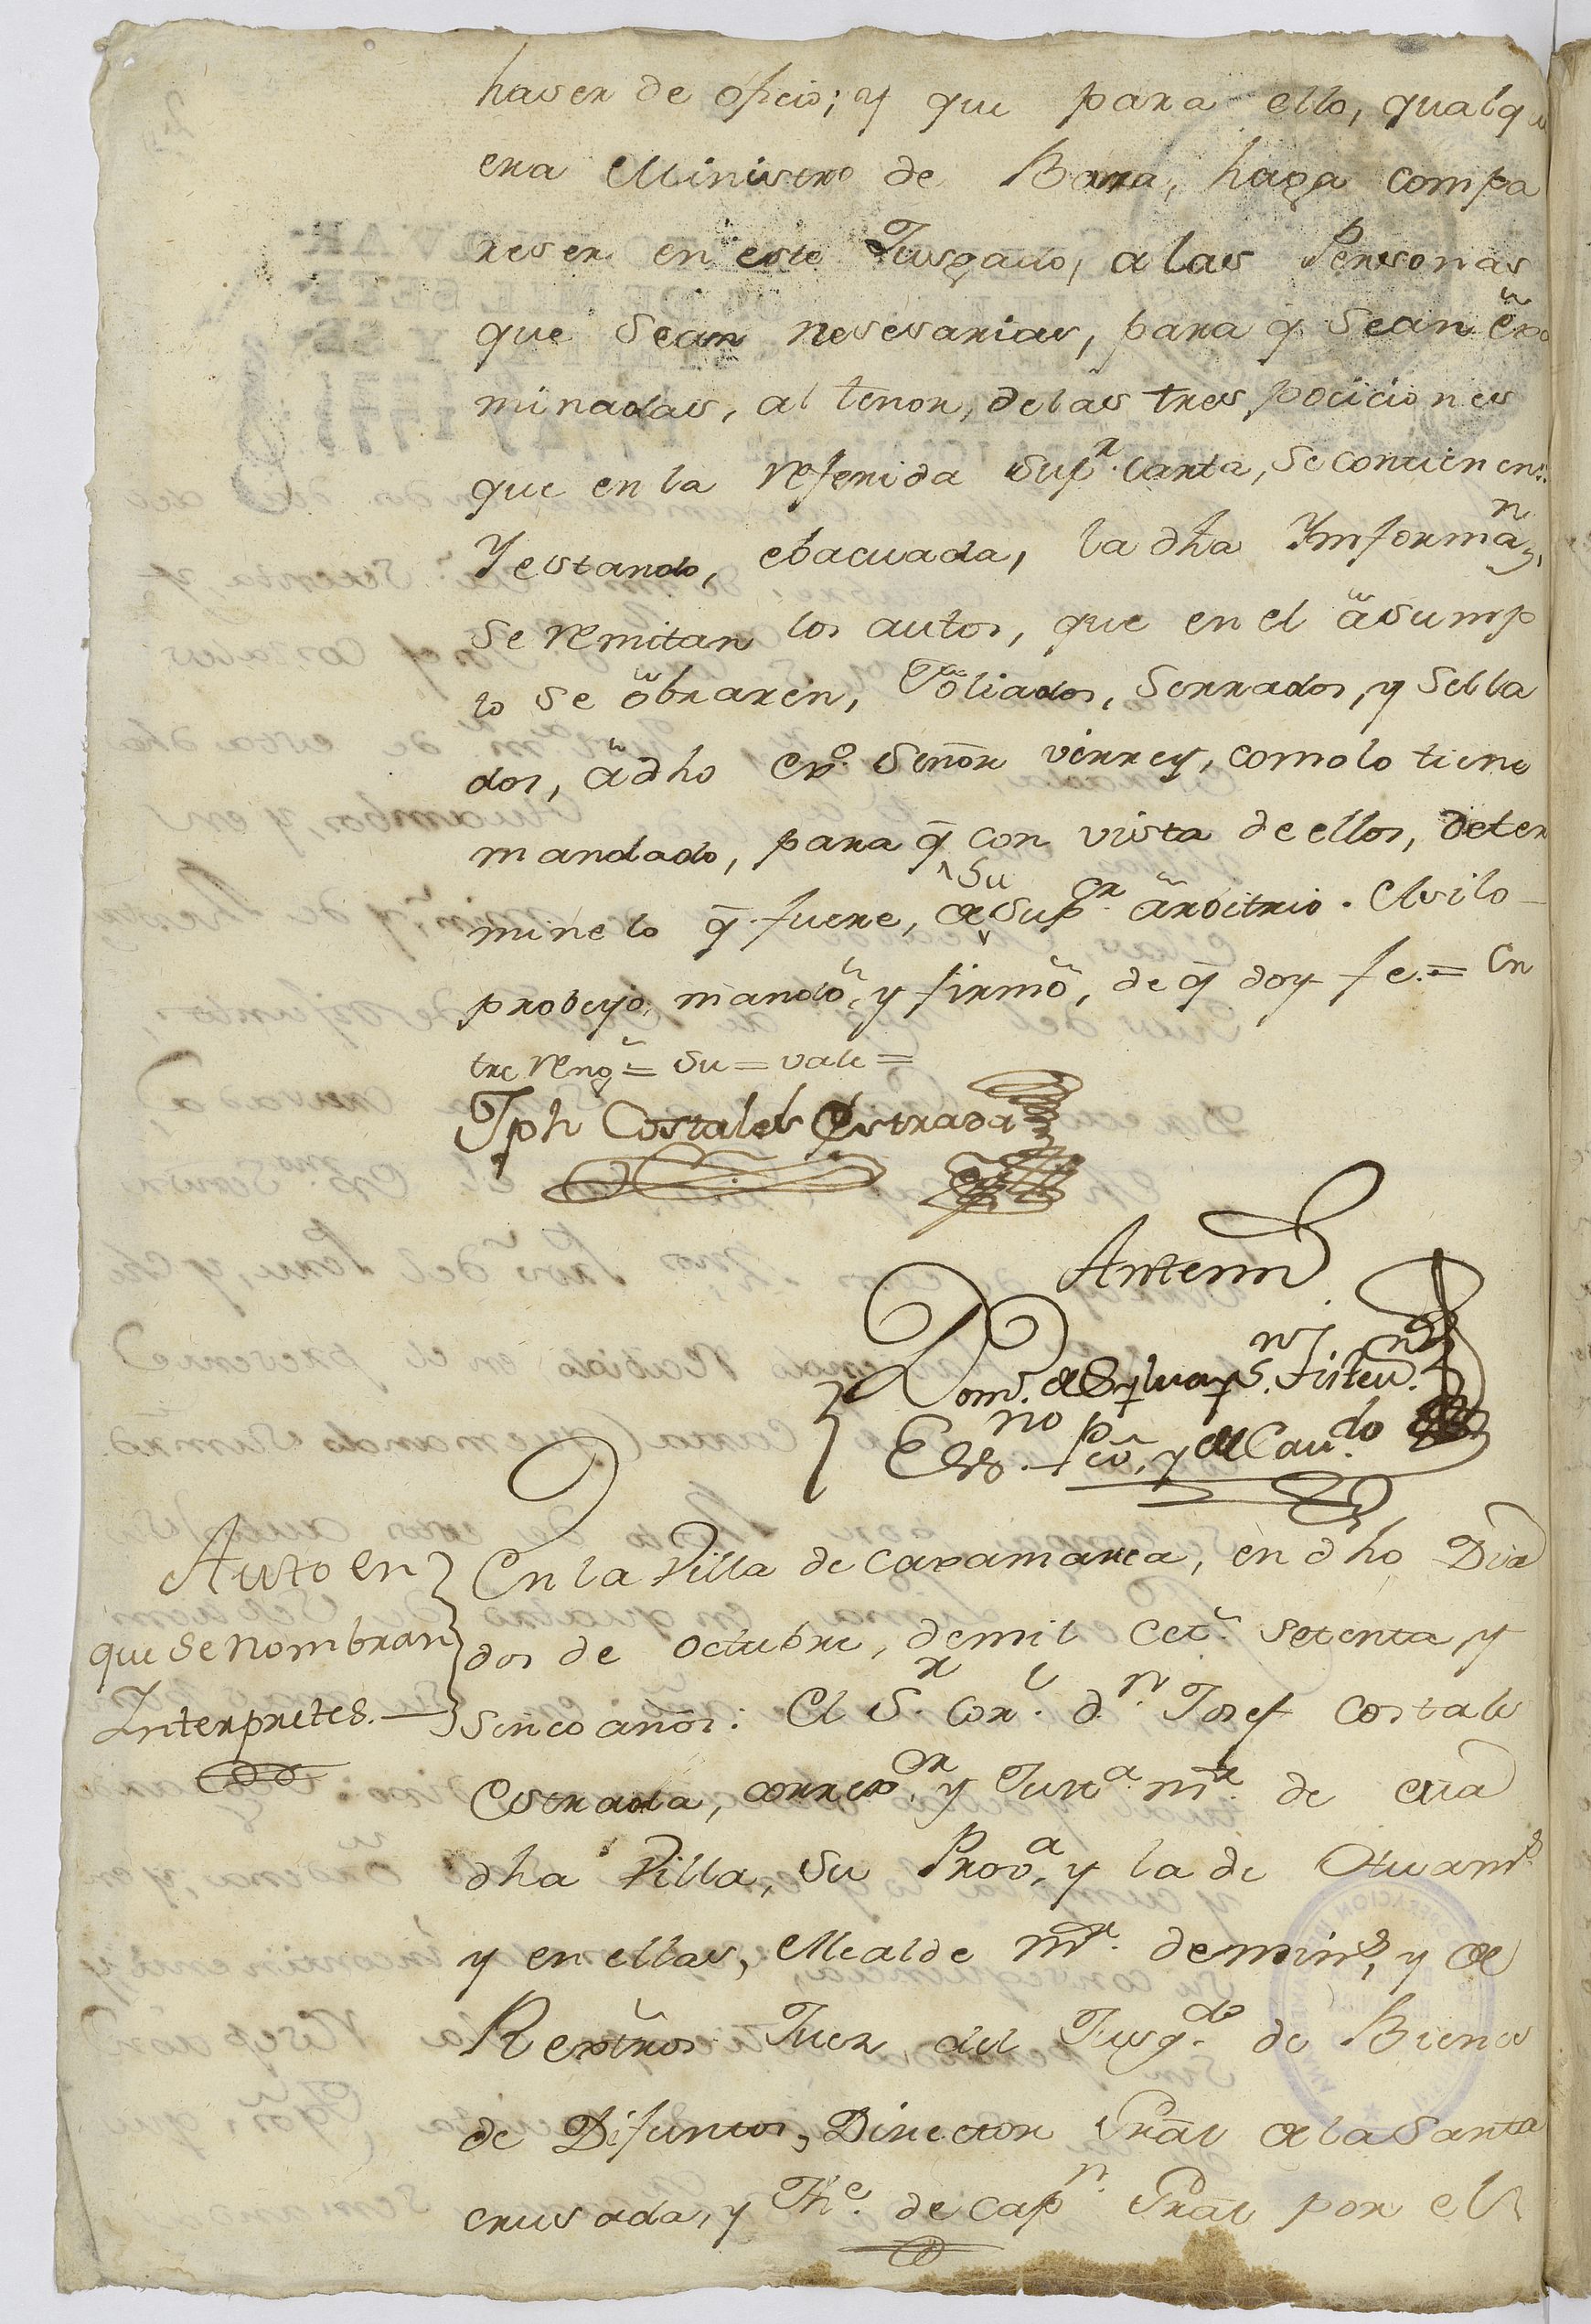 haser de óficio; y que para ello, qualqu
era Ministro de Bara, haga compa
reser en este Jusgado, a las Personas
que sean nesesarias, para q̃ sean exa
minadas, al tenor, delas tres pociciones
que en la referida Sup.r carta, se contienen:
Y estando, ebacuada, la dha Ynforma.n,
se remitan los autos, que en el asump
to se obraren, Foliados, serrados, y sella
dos, a dho ex.o Señor virrey, comolo tiene
mandado, para q̃ con vista de ellos, deter
mine lo q̃ fuere, de su Sup.or arbitrio. Asilo
probeyo, mandó, y firmó, de q̃ doy fe. = En
tre reng.s = su = vale =
Jph Costales Estrada
Antemi
Dom.o de Sylua y
Es.no pco, y de Cau.do
Auto en
que se nombran
Interpretes.
En la Villa de caxamarca, en dho Dia
dos de octubre, demil Cet.s setenta y
sinco años: El S.r Cor.l d.n Josef Costales
Estrada, correx.or y Just.a m.r de esta
dha Villa, su Prov.a, y la de Guam.s
y en ellas, Alcalde m.r de min.s, y de
Rextros Juez del Jusg.do de Bienes
de Difuntos, Director Gral de la Santa
crusada, y Th.e de cap.n Gral por el